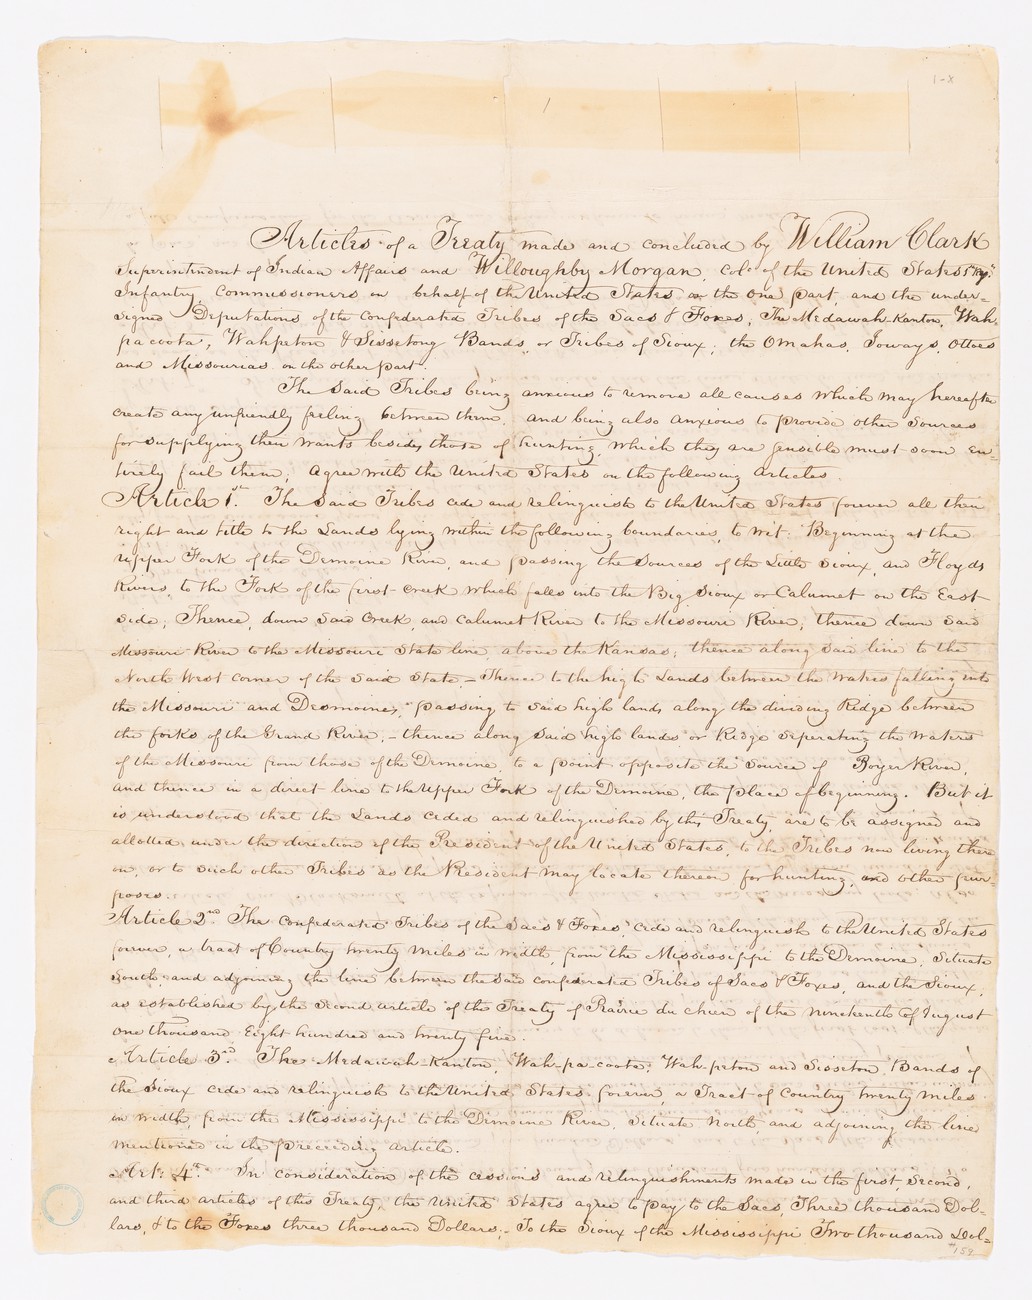 1-8
Articles of a Treaty made and concluded by William Clark
Superintendent of Indian Affairs and Willoughby Morgan, Col. of the United States 1st Regt.
Infantry, Commissioners on behalf of the United States on the one part, and the under-
signed Deputations of the Confederated Tribes of the Sacs & Foxes; The Medawah-Kanton, Wah-
pacoota, Wahpeton & Sissetong Bands or Tribes of Sioux; the Omahas, Ioways, Ottoes
and Missourias on the other part.
The said Tribes being anxious to remove all causes which may hereafter
create any unfriendly feeling between them, and being also anxious to provide other sources
for supplying their wants besides those of hunting, which they are sensible must soon en-
tirely fail them; agree with the United States on the following Articles.
Article 1st. The said Tribes cede and relinquish to the United States forever all their
right and title to the Lands lying within the following boundaries, to wit: Beginning at the
upper Fork of the Demoine River, and passing the sources of the Little Sioux, and Floyds
Rivers, to the Fork of the first Creek which falls into the Big Sioux or Calumet on the East
side; Thence, down said Creek, and Calumet River to the Missouri River; thence down said
Missouri River to the Missouri State line, above the Kansas; thence along said line to the
North West corner of the said State. - Thence to the high Lands between the waters falling into
the Missouri and Desmoines, passing to said high lands along the dividing Ridge between
the forks of the Grand River; - thence along said high lands or Ridge seperating the waters
of the Missouri from those of the Demoine, to a point opposite the source of Boyer River,
and thence in a direct line to the upper Fork of the Demoine, the place of beginning. But it
is understood that the Lands ceded and relinquished by this Treaty, are to be assigned and
allotted under the direction of the President of the United States, to the Tribes now living there
on, or to such other Tribes as the President may locate thereon for hunting, and other pur-
poses.
Article 2nd The confederated Tribes of the Sacs & Foxes cede and relinquish to the United States
forever, a tract of Country twenty Miles in width, from the Mississippi to the Demoine; situate
south, and adjoining the line between the said confederated Tribes of Sacs & Foxes, and the Sioux;
as established by the second article of the Treaty of Prairie du Chien of the nineteenth of August
one thousand Eight hundred and twenty five.
Article 3rd. The Medawah-Kanton, Wah-pa-coota, Wah-peton and Sisseton Bands of
the Sioux cede and relinquish to the United States forever, a Tract of Country twenty miles
in width, from the Mississippi to the Demoine River, situate north, and adjoining the line
mentioned in the preceeding article.
Art: 4th. In consideration of the cessions and relinquishments made in the first second,
and third articles of this Treaty, the United States agree to pay to the Sacs, Three thousand Dol-
lars, & to the Foxes three thousand Dollars; - To the Sioux of the Mississippi Two thousand Dol-
159